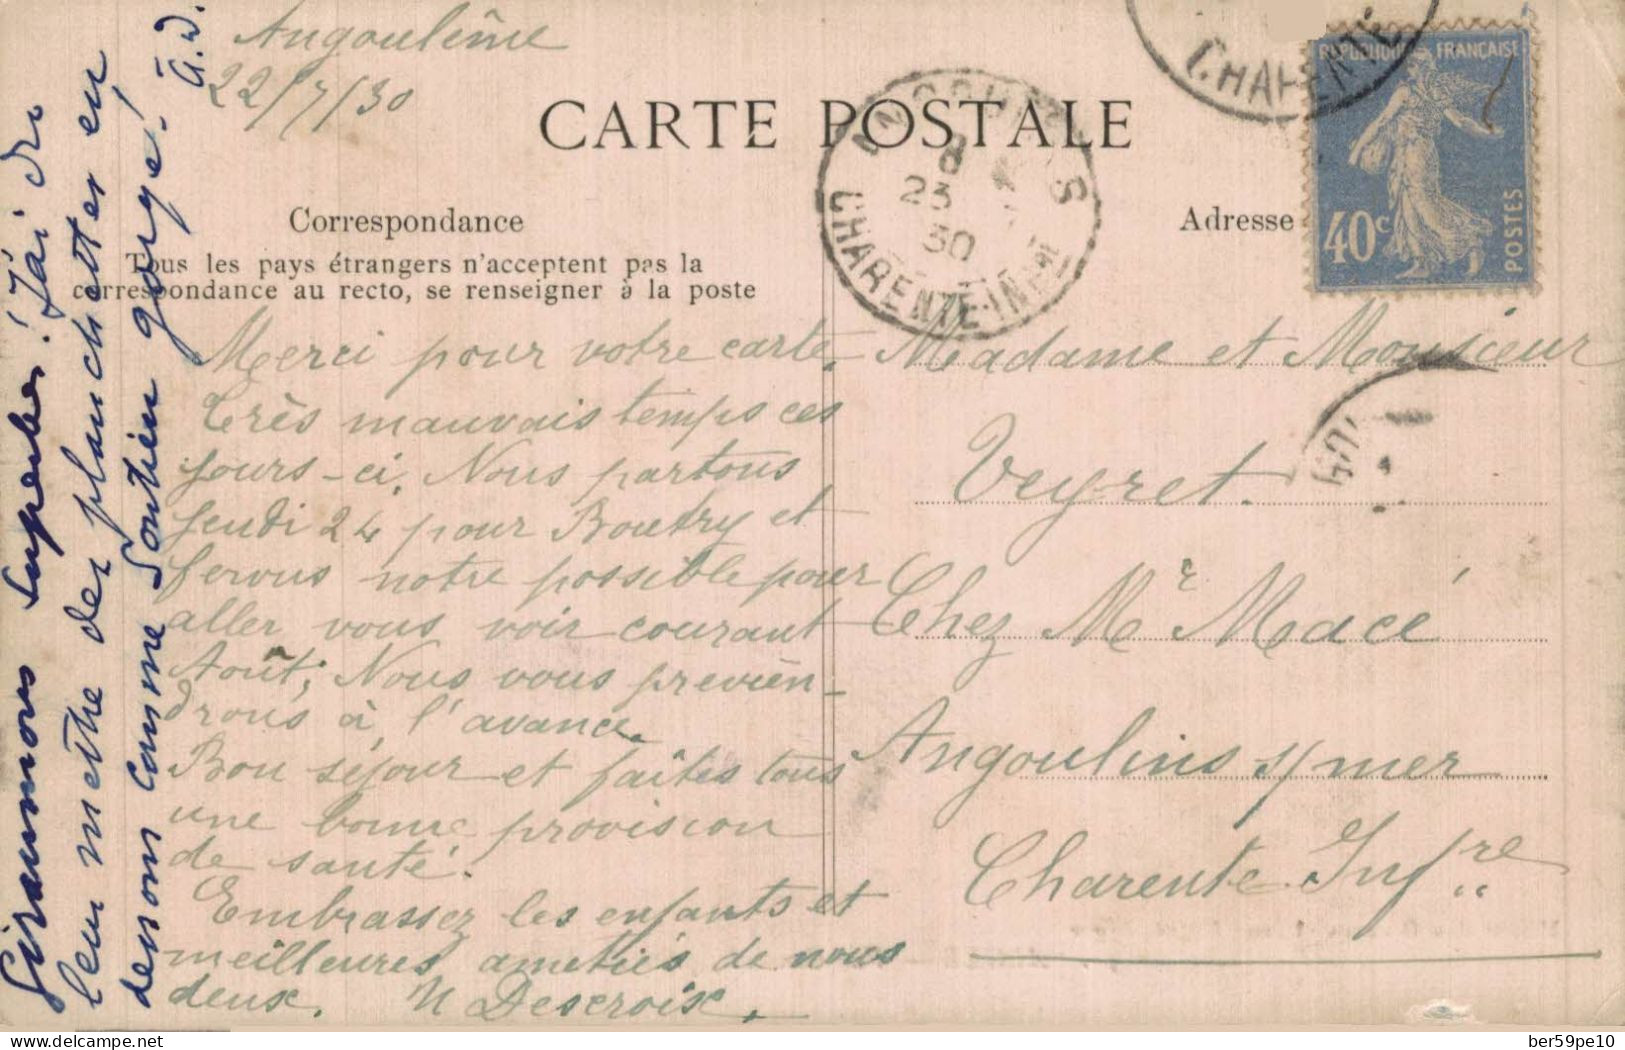 Angoulême
22/7/30
CARTE POSTALE
Correspondance
Tous les pays étrangers n'acceptent pas la
correspondance au recto, se renseigner à la poste
Adresse
REPUBLIQUE FRANÇAISE
40c
POSTES
CHARENTE
ANGOULINS
23
30
CHARENTE-INFRE
Merci pour votre carte.
Très mauvais temps ces
jours-ci. Nous partons
Jeudi 24 pour Boutry et
ferons notre possible pour
aller vous voir courant
Août; Nous vous prévien-
drons à l'avance.
Bon séjour et faites tous
une bonne provision
de santé.
Embrassez les enfants et
meilleures amitiés de nous
deux. N Descroix.
Madame et Monsieur
Veyret.
Chez Mr Macé
Angoulins s/mer
Charente Infre
Giraumons superbes! J'ai du
leur mettre des planchettes en
dessous comme Soutien gorge! a.d.
delcampe.net
ber59pe10